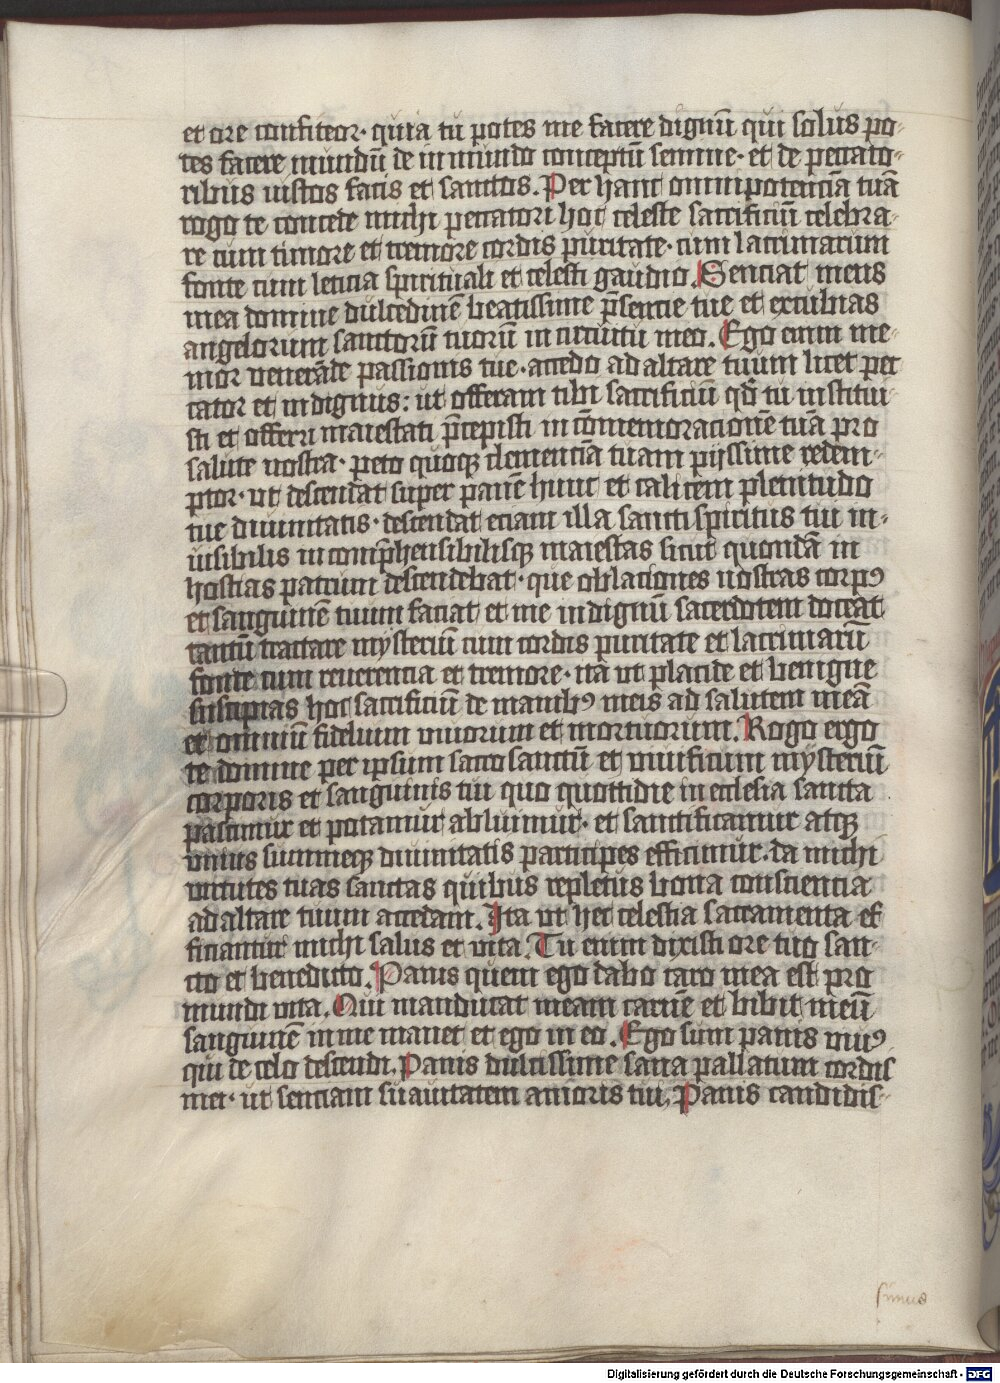 et ore confiteor· quia tu potes me facere dignū qui solus po-
tes facere mundū de inmundo conceptū semine· et de peccato-
ribus iustos facis et sanctos. Per hanc omnipotenciā tuā
rogo te concede michi peccatori hoc celeste sacrificiū celebra-
re cum timore et tremore cordis puritate· cum lacrimarum
fonte cum leticia spirituali et celesti gaudio. Senciat mens
mea domine dulcedinē beatissime p̄sencie tue et excubias
angelorum sanctorū tuorū in circuitu meo. Ego enim me-
mor venerāde passionis tue· accedo ad altare tuum licet pec
cator et indignus: ut offeram tibi sacrificiū qđ tu institui-
sti et offerri maiestati p̄cepisti in cōmemoracionē tuā pro
salute nostra· peto quoqꝫ clemenciā tuam pijssime redem-
ptor· ut descendat super panē hunc et calicem plenitudo
tue diuinitatis· descendat eciam illa sancti spiritus tui in-
uisibilis incomp̄hensibilisqꝫ maiestas sicut quondā in
hostias patrum descendebat· que oblationes nostras corpꝰ
et sanguinē tuum faciat et me indignū sacerdotem doceat
tantū tractare mysteriū cum cordis puritate et lacrimarū
fonte cum reuerencia et tremore· ita ut placide et benigne
suscipias hoc sacrificiū de manibꝰ meis ad salutem meā
et omniū fidelium viuorum et mortuorum. Rogo ergo
te domine per ipsum sacrosanctū et viuificum mysteriū
corporis et sanguinis tui quo quottidie in ecclesia sancta
pascimur et potamur abluimur· et sanctificamur atqꝫ
vnius summeqꝫ diuinitatis participes efficimur. da michi
virtutes tuas sanctas quibus repletus bona consciencia
ad altare tuum accedam. Ita ut hec celestia sacramenta ef
ficiantur michi salus et vita. Tu enim dixisti ore tuo san-
cto et benedicto. Panis quem ego dabo caro mea est pro
mundi vita. Qui manducat meam carnē et bibit meū
sanguinē in me manet et ego in eo. Ego sum panis viuꝰ
qui de celo descendi. Panis dulcissime sana pallatum cordis
mei· ut senciam suauitatem amoris tui. Panis candidis-
simus
Digitalisierung gefördert durch die Deutsche Forschungsgemeinschaft - DFG